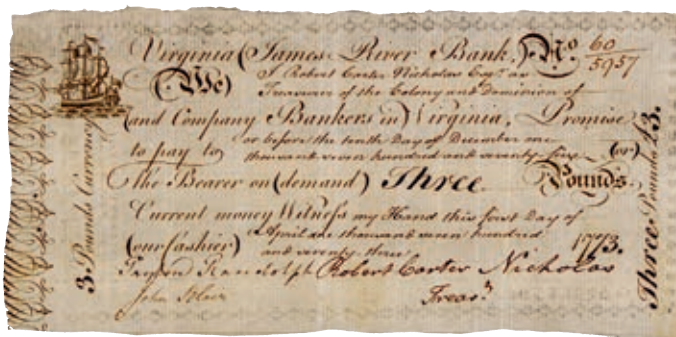 Virginia (James River Bank.) No. 60
5957
(We)
I Robert Carter Nicholas Esqr. as
Treasurer of the Colony and Dominion of
(and Company Bankers in) Virginia, Promise
to pay to
or before the tenth Day of December one
thousand seven hundred and seventy five
(or)
the Bearer on (demand) Three Pounds
Current money Witness my Hand this first Day of
(our Cashier)
April one thousand seven hundred
and seventy three
1773.
Peyton Randolph Robert Carter Nicholas
John Blair
Treasr.
3. Pounds Currency
Three Pounds £3.